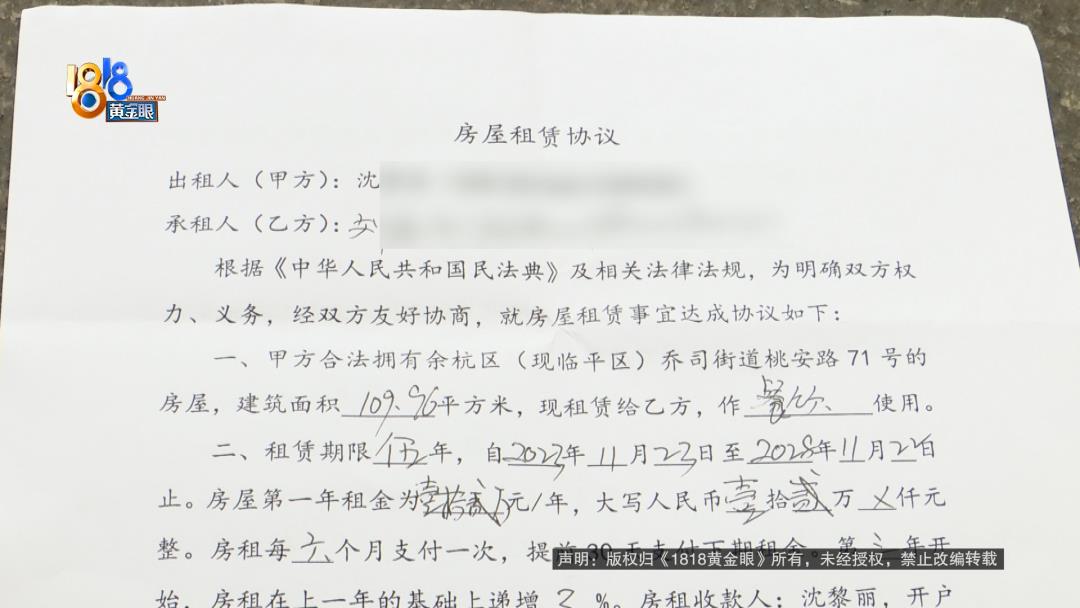 1818
HUANG JIN YAN
黄金眼
房屋租赁协议
出租人（甲方）：沈
承租人（乙方）：安
根据《中华人民共和国民法典》及相关法律法规，为明确双方权
力、义务，经双方友好协商，就房屋租赁事宜达成协议如下：
一、甲方合法拥有余杭区（现临平区）乔司街道桃安路 71 号的
房屋，建筑面积 109.96 平方米，现租赁给乙方，作 餐饮 使用。
二、租赁期限 伍 年，自 2023 年 11 月 23 日至 2028 年 11 月 22 日
止。房屋第一年租金为 壹拾贰万 元/年，大写人民币 壹 拾 贰 万 仟元
整。房租每 六 个月支付一次，提前 30 天支付下期租金。第 三 年开
声明：版权归《1818黄金眼》所有，未经授权，禁止改编转载
始，房租在上一年的基础上递增 %。房租收款人：沈黎丽，开户